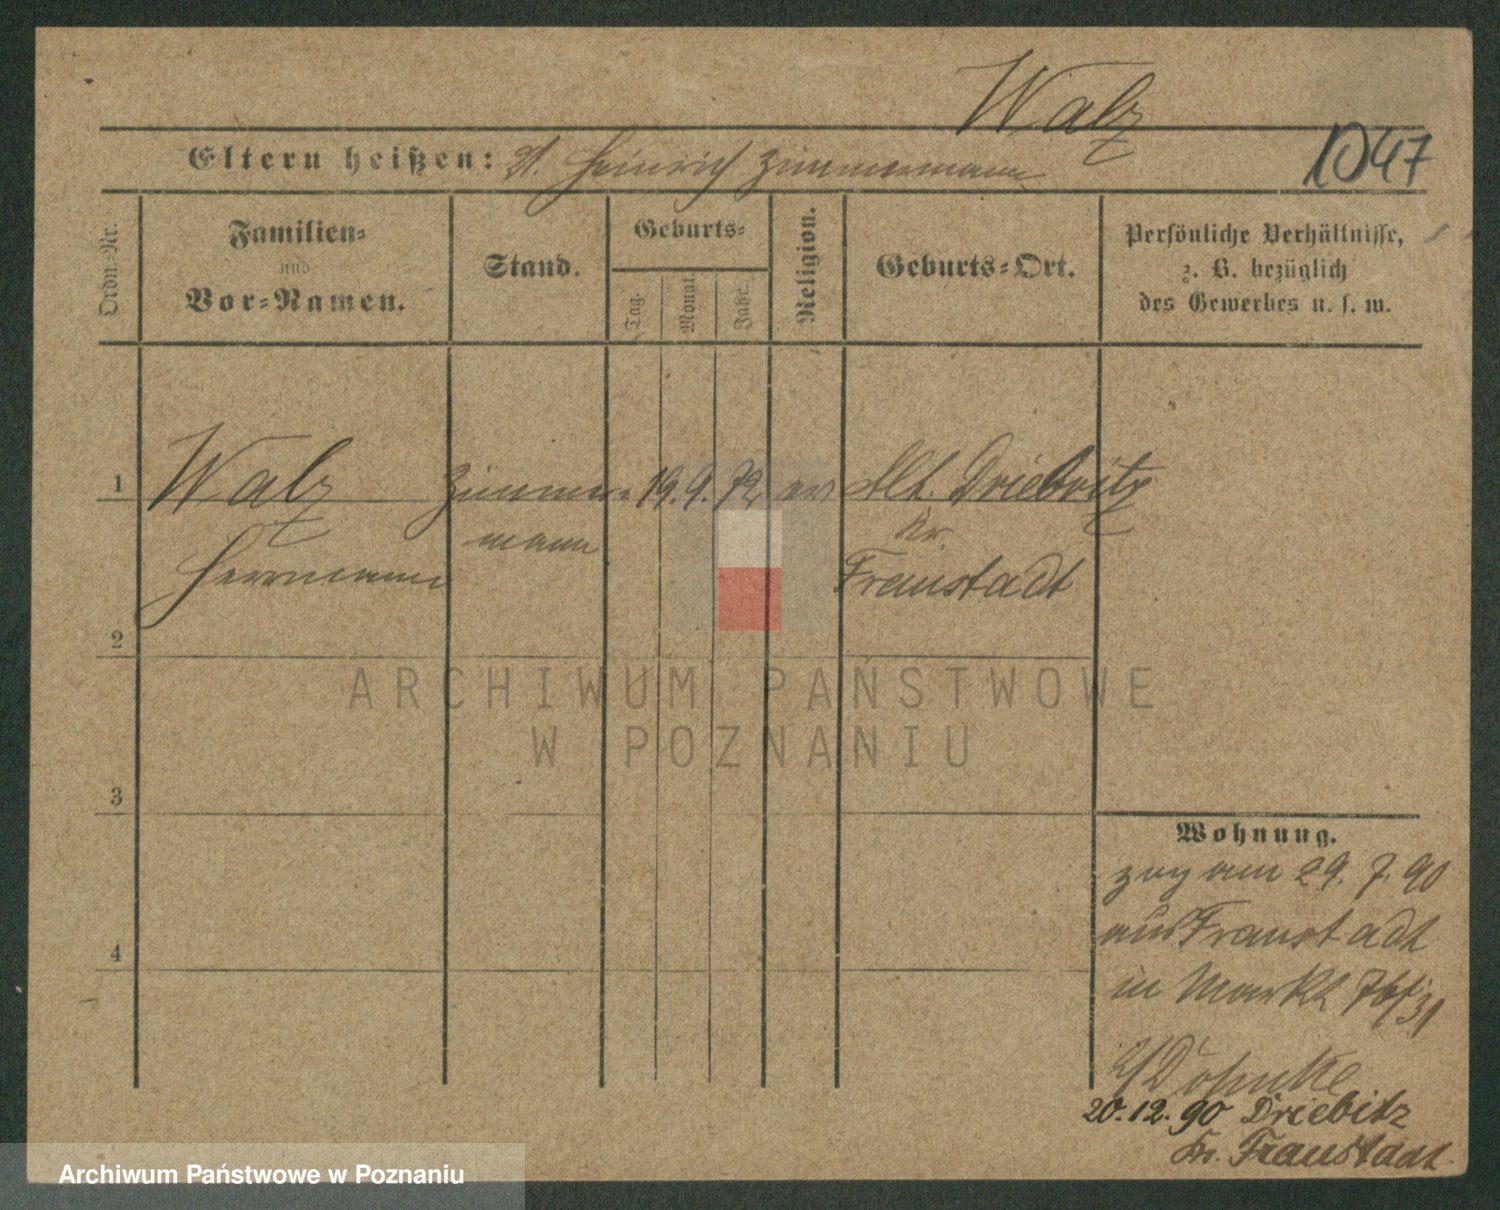 Walz
1047
Eltern heißen: St. Heinrich Zimmermann
Ordn.-Nr.
Familien-
und
Vor-Namen.
Stand.
Geburts-
Tag.
Monat.
Jahr.
Religion.
Geburts-Ort.
Persönliche Verhältnisse,
z. B. bezüglich
des Gewerbes u. s. w.
1 Walz Zimmer- 19. 9. 72 ev Alt. Driebitz
mann Kr.
Herrmann Fraustadt
2
ARCHIWUM PAŃSTWOWE
W POZNANIU
3
4
Wohnung.
zug am 29. 7. 90
aus Fraustadt
in Markt 76/31
20.12.90 Driebitz
Kr. Fraustadt.
Archiwum Państwowe w Poznaniu